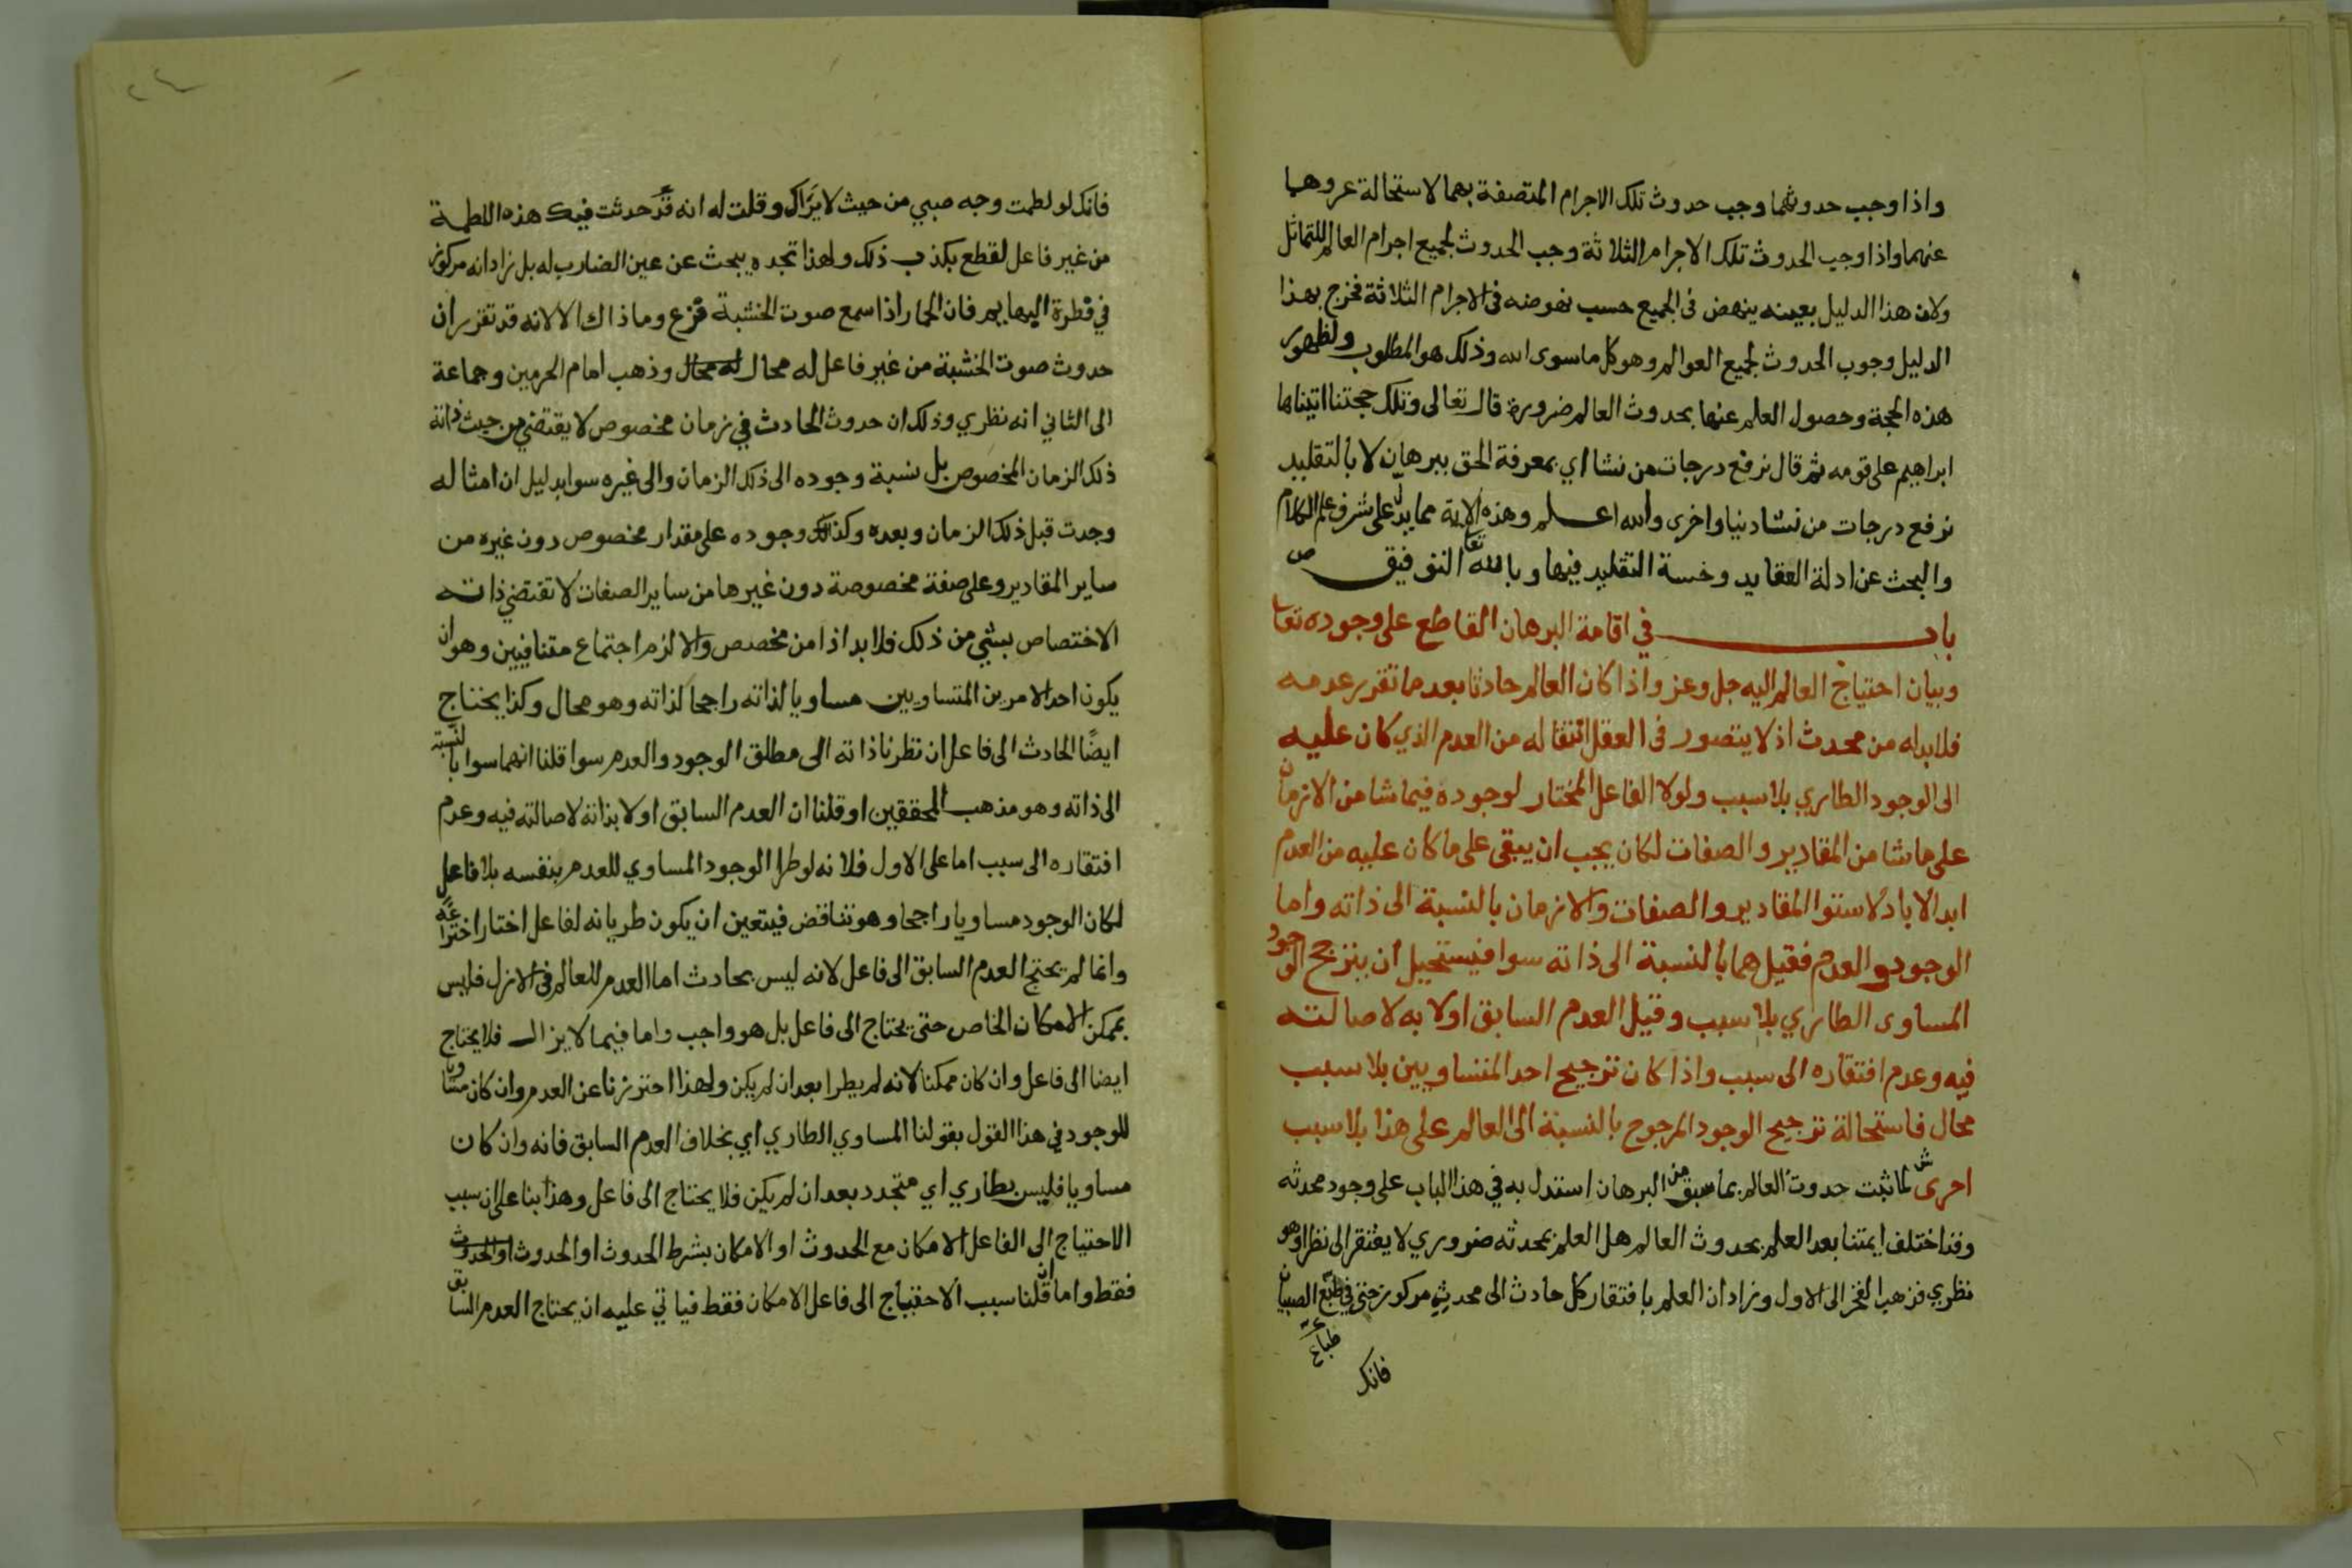 واذا وجب حدوثهما وجب حدوث تلك الاجرام المتصفة بهما لاستحالة عروهما
عنهما واذا وجب الحدوث تلك الاجرام الثلاثة وجب الحدوث لجميع اجرام العالم للتماثل
ولان هذا الدليل بعينه ينهض في الجميع حسب نهوضه في الاجرام الثلاثة فخرج بهذا
الدليل وجوب الحدوث لجميع العوالم وهو كل ما سوى الله وذلك هو المطلوب ولظهور
هذه الحجة وحصول العلم عنها بحدوث العالم ضرورة قال تعالى وتلك حجتنا اتيناها
ابراهيم على قومه ثم قال نرفع درجات من نشا اي بمعرفة الحق ببرهان لا بالتقليد
نرفع درجات من نشا دنيا واخرى والله اعلم وهذه الاية مما يدل على شرف علم الكلام
والبحث عن ادلة العقايد وخسة التقليد فيها وبالله تعا التوفيق ص
باب في اقامة البرهان القاطع على وجوده تعا
وبيان احتياج العالم اليه جل وعز واذا كان العالم حادثا بعد ما تقرر عدمه
فلا بد له من محدث اذ لا يتصور في العقل انتقاله من العدم الذي كان عليه
الى الوجود الطاري بلا سبب ولولا الفاعل المختار لوجوده فيما شا من الازمان
على ما شا من المقادير والصفات لكان يجب ان يبقى على ما كان عليه من العدم
ابد الاباد لاستوا المقادير والصفات والازمان بالنسبة الى ذاته واما
الوجود والعدم فقيل هما بالنسبة الى ذاته سوا فيستحيل ان يترجح الوجود
المساوى الطاري بلا سبب وقيل العدم السابق اولا به لاصالته
فيه وعدم افتقاره الى سبب واذا كان ترجيح احد المتساويين بلا سبب
محال فاستحالة ترجيح الوجود المرجوح بالنسبة الى العالم على هذا بلا سبب
احرى ش لما ثبت حدوث العالم بما سبق من البرهان استدل به في هذا الباب على وجود محدثه
وقد اختلف ايمتنا بعد العلم بحدوث العالم هل العلم بمحدثه ضروري لا يفتقر الى نظر او هو
نظري فذهب الفخر الى الاول وزاد ان العلم بافتقار كل حادث الى محدث مركوز حتى في طبع الصبيان
طباع
فانك
فانك لو لطمت وجه صبي من حيث لا يراك وقلت له انه قد حدثت فيك هذه اللطمة
من غير فاعل لقطع بكذب ذلك ولهذا تجده يبحث عن عين الضارب له بل زاد انه مركوز
في فطرة البهايم فان الحمار اذا سمع صوت الخشبة فزع وما ذاك الا لانه قد تقرر ان
حدوث صوت الخشبة من غير فاعل له محال له محال وذهب امام الحرمين وجماعة
الى الثاني انه نظري وذلك ان حدوث الحادث في زمان مخصوص لا يقتضي من حيث ذاته
ذلك الزمان المخصوص بل نسبة وجوده الى ذلك الزمان والى غيره سوا بدليل ان امثاله
وجدت قبل ذلك الزمان وبعده وكذلك وجوده على مقدار مخصوص دون غيره من
ساير المقادير وعلى صفة مخصوصة دون غيرها من ساير الصفات لا تقتضي ذاته
الاختصاص بشي من ذلك فلا بد اذا من مخصص والا لزم اجتماع متنافيين وهو ان
يكون احد الامرين المتساويين مساويا لذاته راجحا لذاته وهو محال وكذا يحتاج
ايضًا الحادث الى فاعل ان نظرنا ذاته الى مطلق الوجود والعدم سوا قلنا انهما سوا بالنسبة
الى ذاته وهو مذهب المحققين او قلنا ان العدم السابق اولا بذاته لاصالته فيه وعدم
افتقاره الى سبب اما على الاول فلانه لو طرا الوجود المساوي للعدم بنفسه بلا فاعل
لكان الوجود مساويا راجحا وهو تناقض فيتعين ان يكون طريانه لفاعل اختار اختراعه
وانما لم يحتج العدم السابق الى فاعل لانه ليس بحادث اما العدم للعالم في الازل فليس
بممكن الامكان الخاص حتى يحتاج الى فاعل بل هو واجب واما فيما لا يزال فلا يحتاج
ايضا الى فاعل وان كان ممكنا لانه لم يطرا بعد ان لم يكن ولهذا احترزنا عن العدم وان كان مساويا
للوجود في هذا القول بقولنا المساوي الطاري اي بخلاف العدم السابق فانه وان كان
مساويا فليس بطاري اي متجدد بعد ان لم يكن فلا يحتاج الى فاعل وهذا بنا على ان سبب
الاحتياج الى الفاعل الامكان مع الحدوث او الامكان بشرط الحدوث او الحدوث او الحدوث
فقط واما ان قلنا سبب الاحتياج الى فاعل الامكان فقط فياتي عليه ان يحتاج العدم السابق